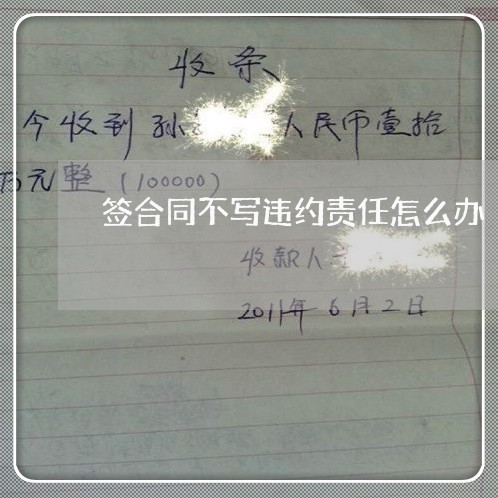 收条
今收到孙 人民币壹拾
万元整（100000）
签合同不写违约责任怎么办
收款人
2011年6月2日